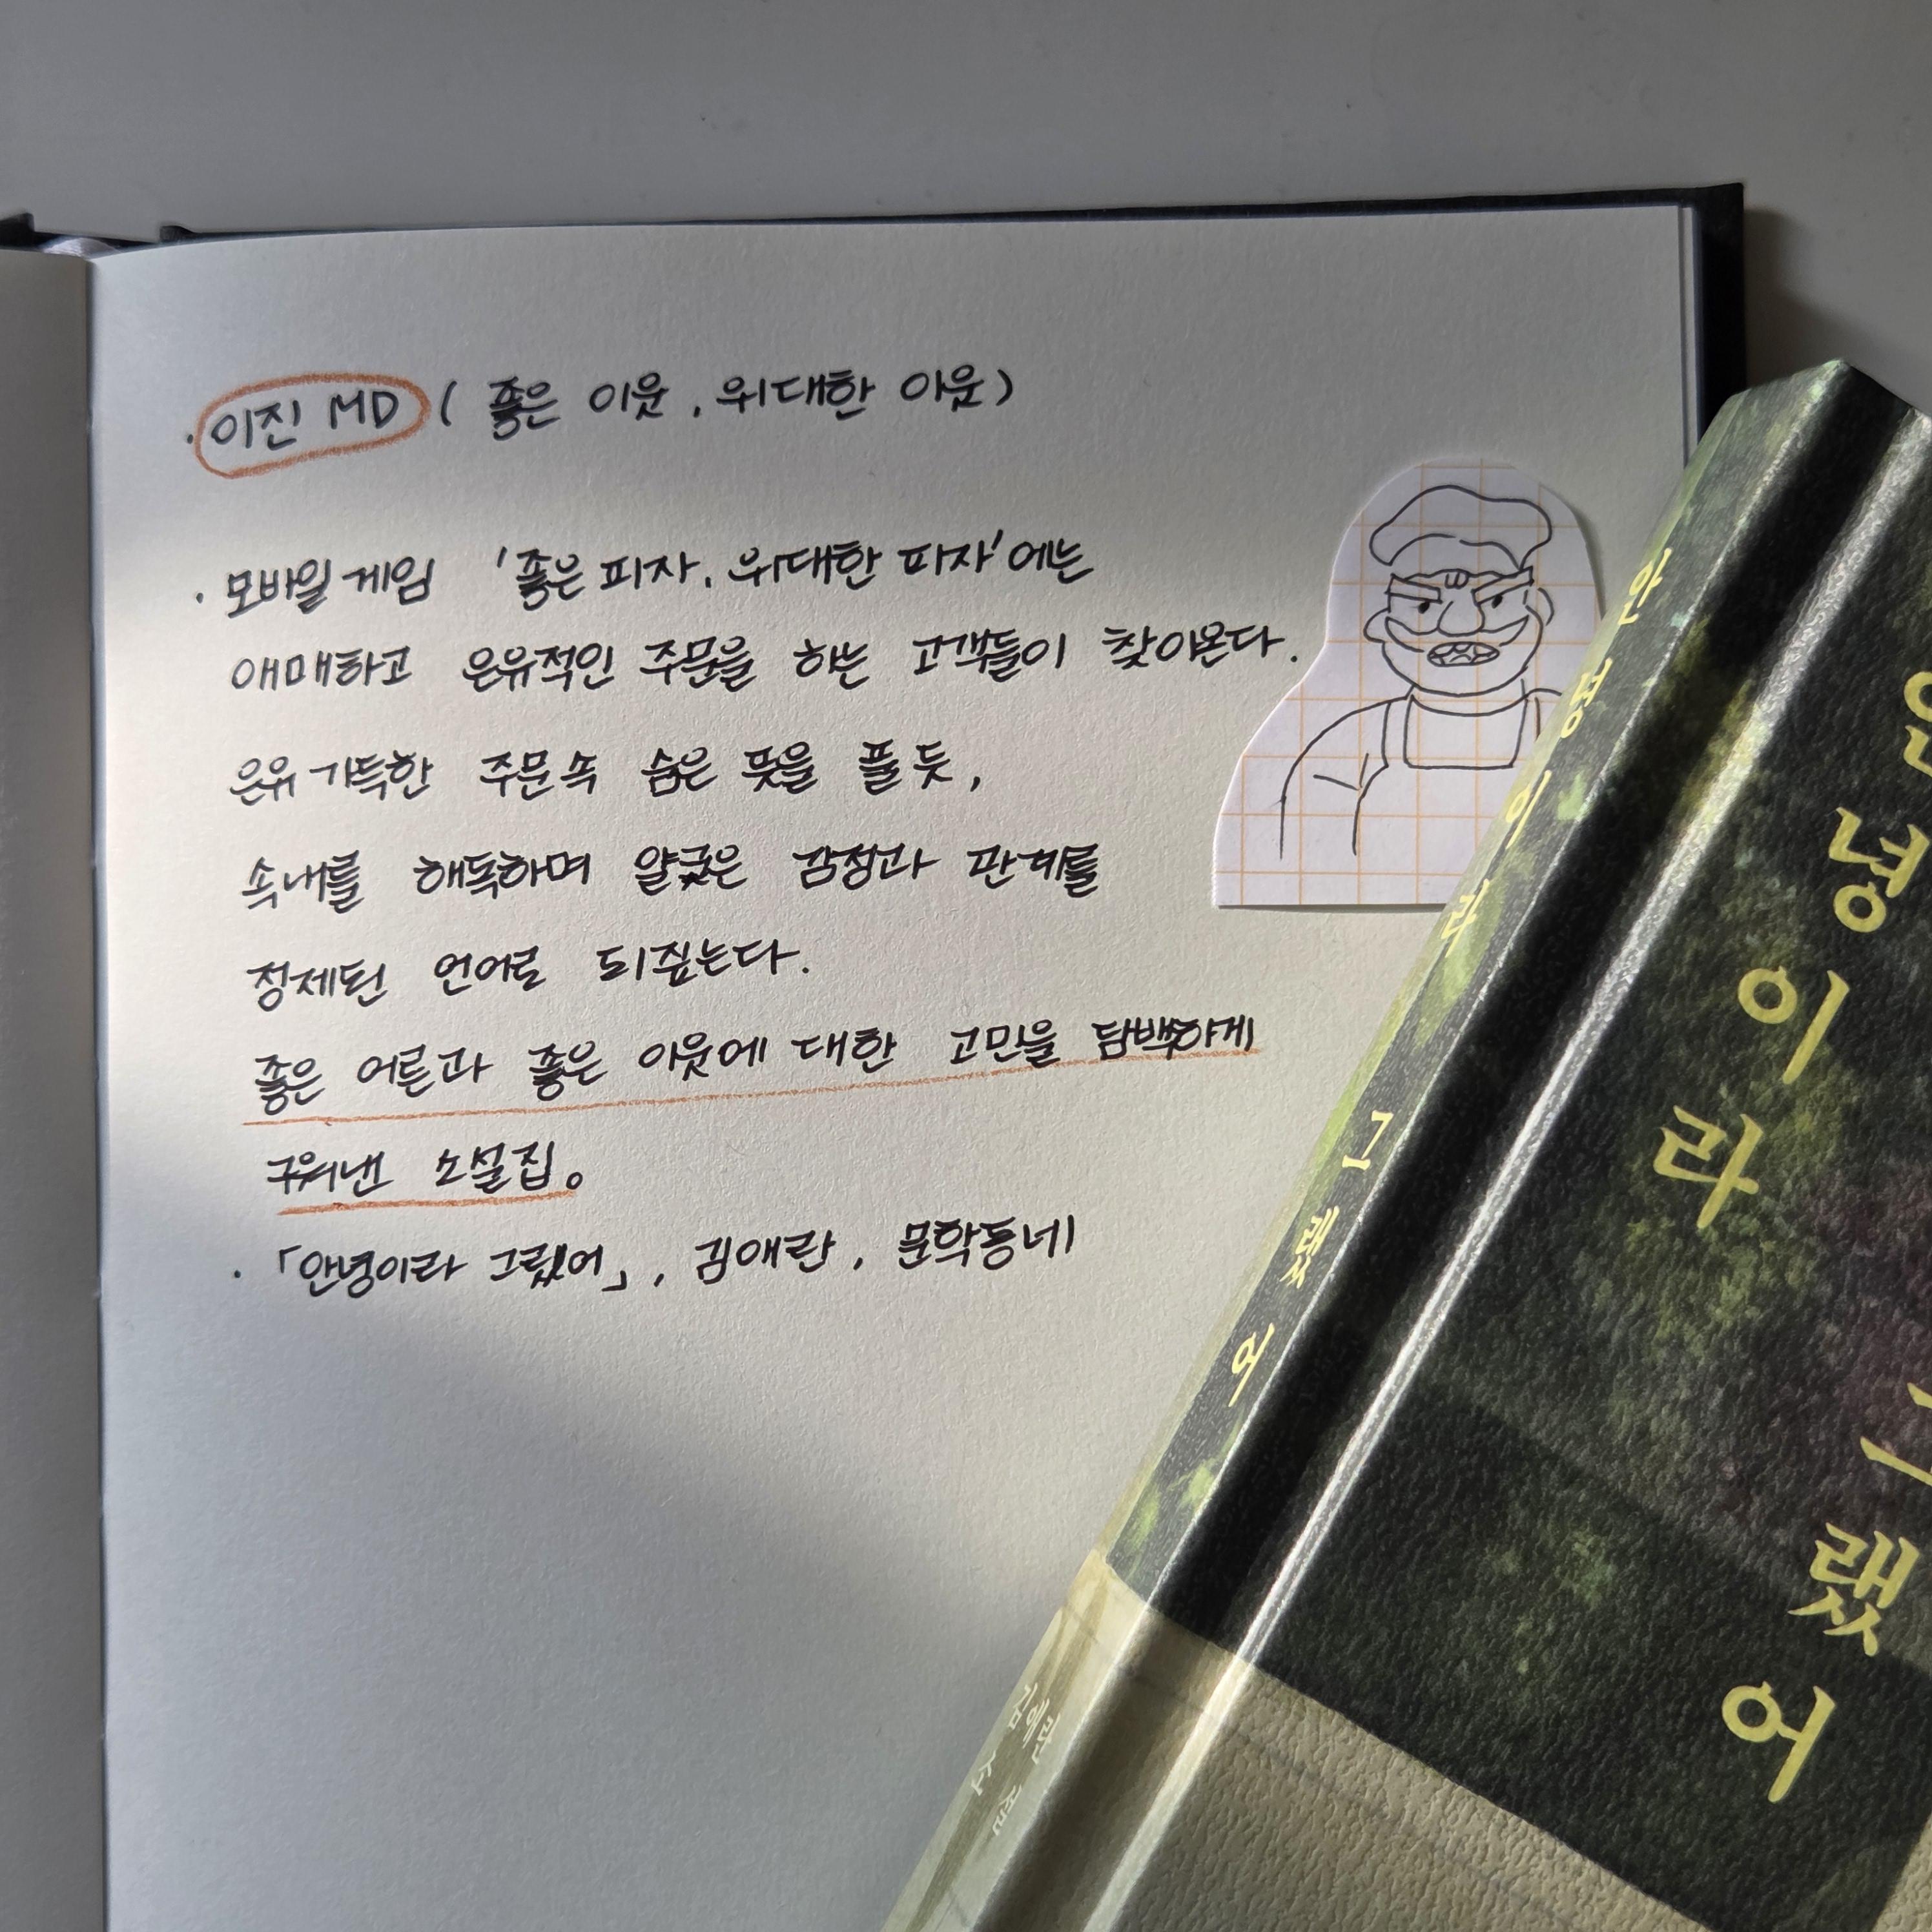 · 이진 MD ( 좋은 이웃, 위대한 이웃)
· 모바일 게임 '좋은 피자, 위대한 피자'에는
애매하고 은유적인 주문을 하는 고객들이 찾아온다.
은유 가득한 주문 속 숨은 뜻을 풀 듯,
속내를 해독하며 얄궂은 감정과 관계를
정제된 언어로 되짚는다.
좋은 어른과 좋은 이웃에 대한 고민을 담백하게
구워낸 소설집。
· 「안녕이라 그랬어」, 김애란, 문학동네
안녕이라 그랬어
안녕이라
그랬어